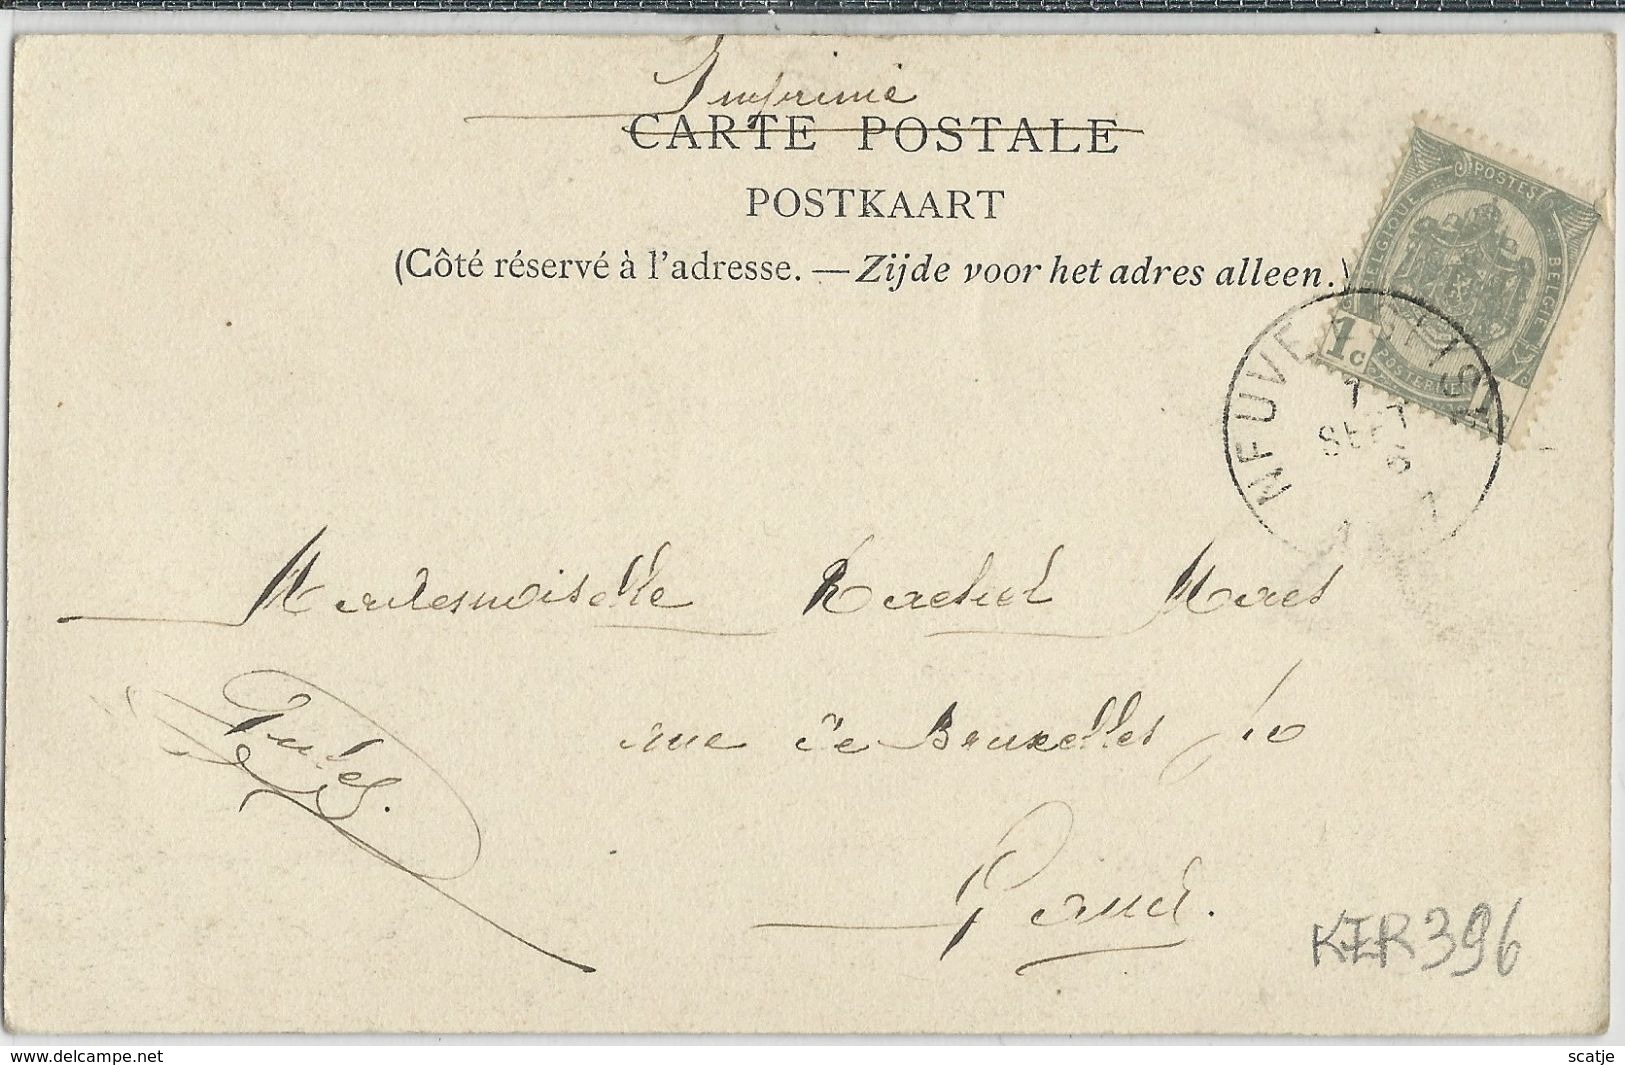 Imprimé
CARTE POSTALE
POSTKAART
(Côté réservé à l'adresse. — Zijde voor het adres alleen.)
POSTES
BELGIQUE
BELGIË
1c
POSTERIJEN
1
7
SEPT
Mademoiselle Rachel Maes
rue de Bruxelles 10
Gand.
Jules.
KER 396
www.delcampe.net
scatje